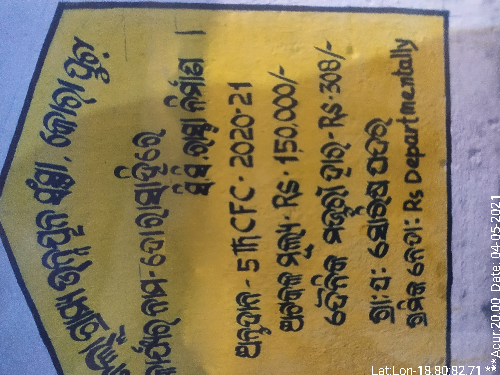 ଗ୍ରାମ ଉନ୍ନୟନ ସଂସ୍ଥା, କୋରାପୁଟ
କାର୍ଯ୍ୟର ନାମ-
ସି.ସି. ରାସ୍ତା ନିର୍ମାଣ ।
ଅନୁଦାନ - 5Th CFC - 2020-21
ଅଟକଳ ମୂଲ୍ୟ - Rs - 150,000/-
ଦୈନିକ ମଜୁରୀ ହାର - Rs - 308/-
ଗ୍ରା: ପ:
ଶ୍ରମିକ ନେତା: Rs Departmentally
Lat:Lon-18.80:82.71 ***Acur 20.00 Date: 04-05-2021